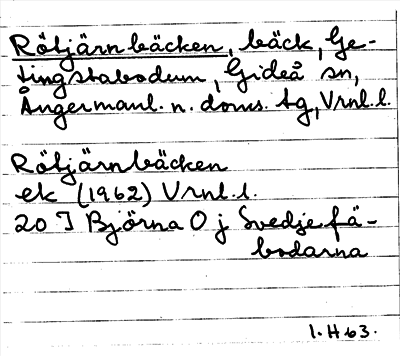 Rötjärnbäcken, bäck, Ge-
tingstabodum, Gideå sn,
Ångermanl. n. doms. tg, Vrnl. l.
Rötjärnbäcken
ek (1962) Vrnl. l.
20 I Björna O j Svedjefä-
bodarna
1. H 63.